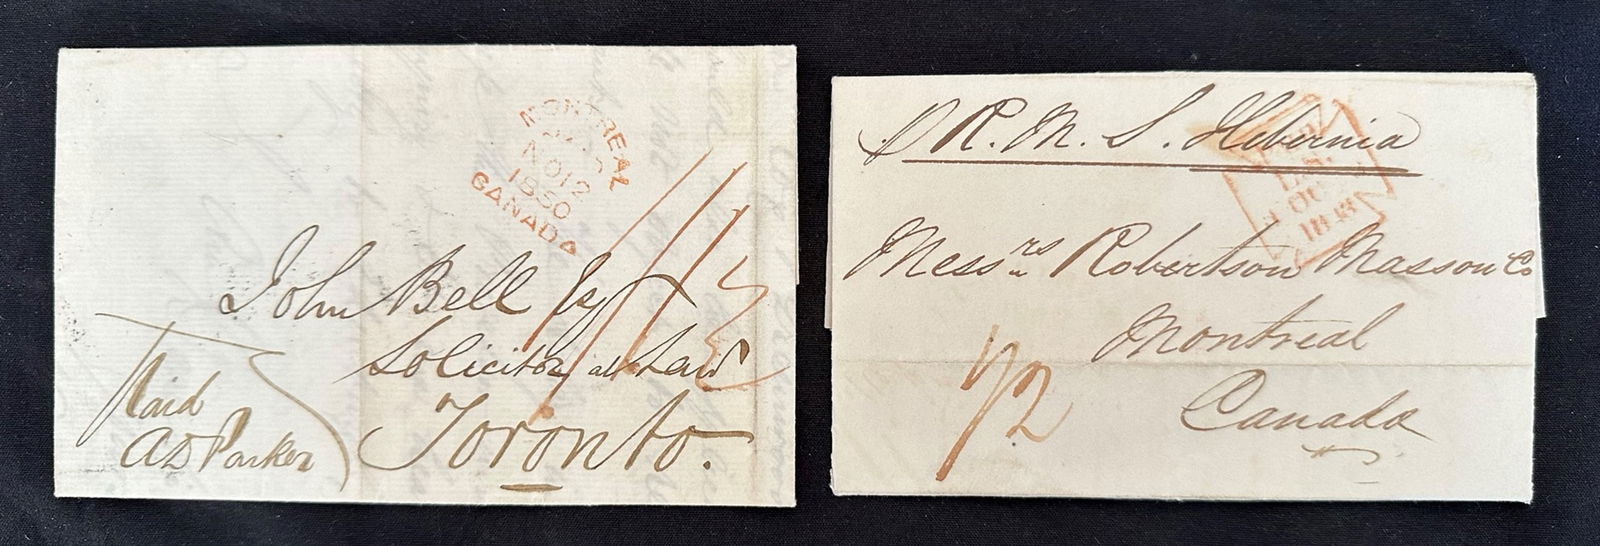 MONTREAL
NO 12
1850
CANADA
John Bell Esq
Solicitor at Law
Toronto.
Paid
AD Parker
R. M. S. Hibernia
Messrs Robertson Masson & Co
Montreal
Canada
1/2